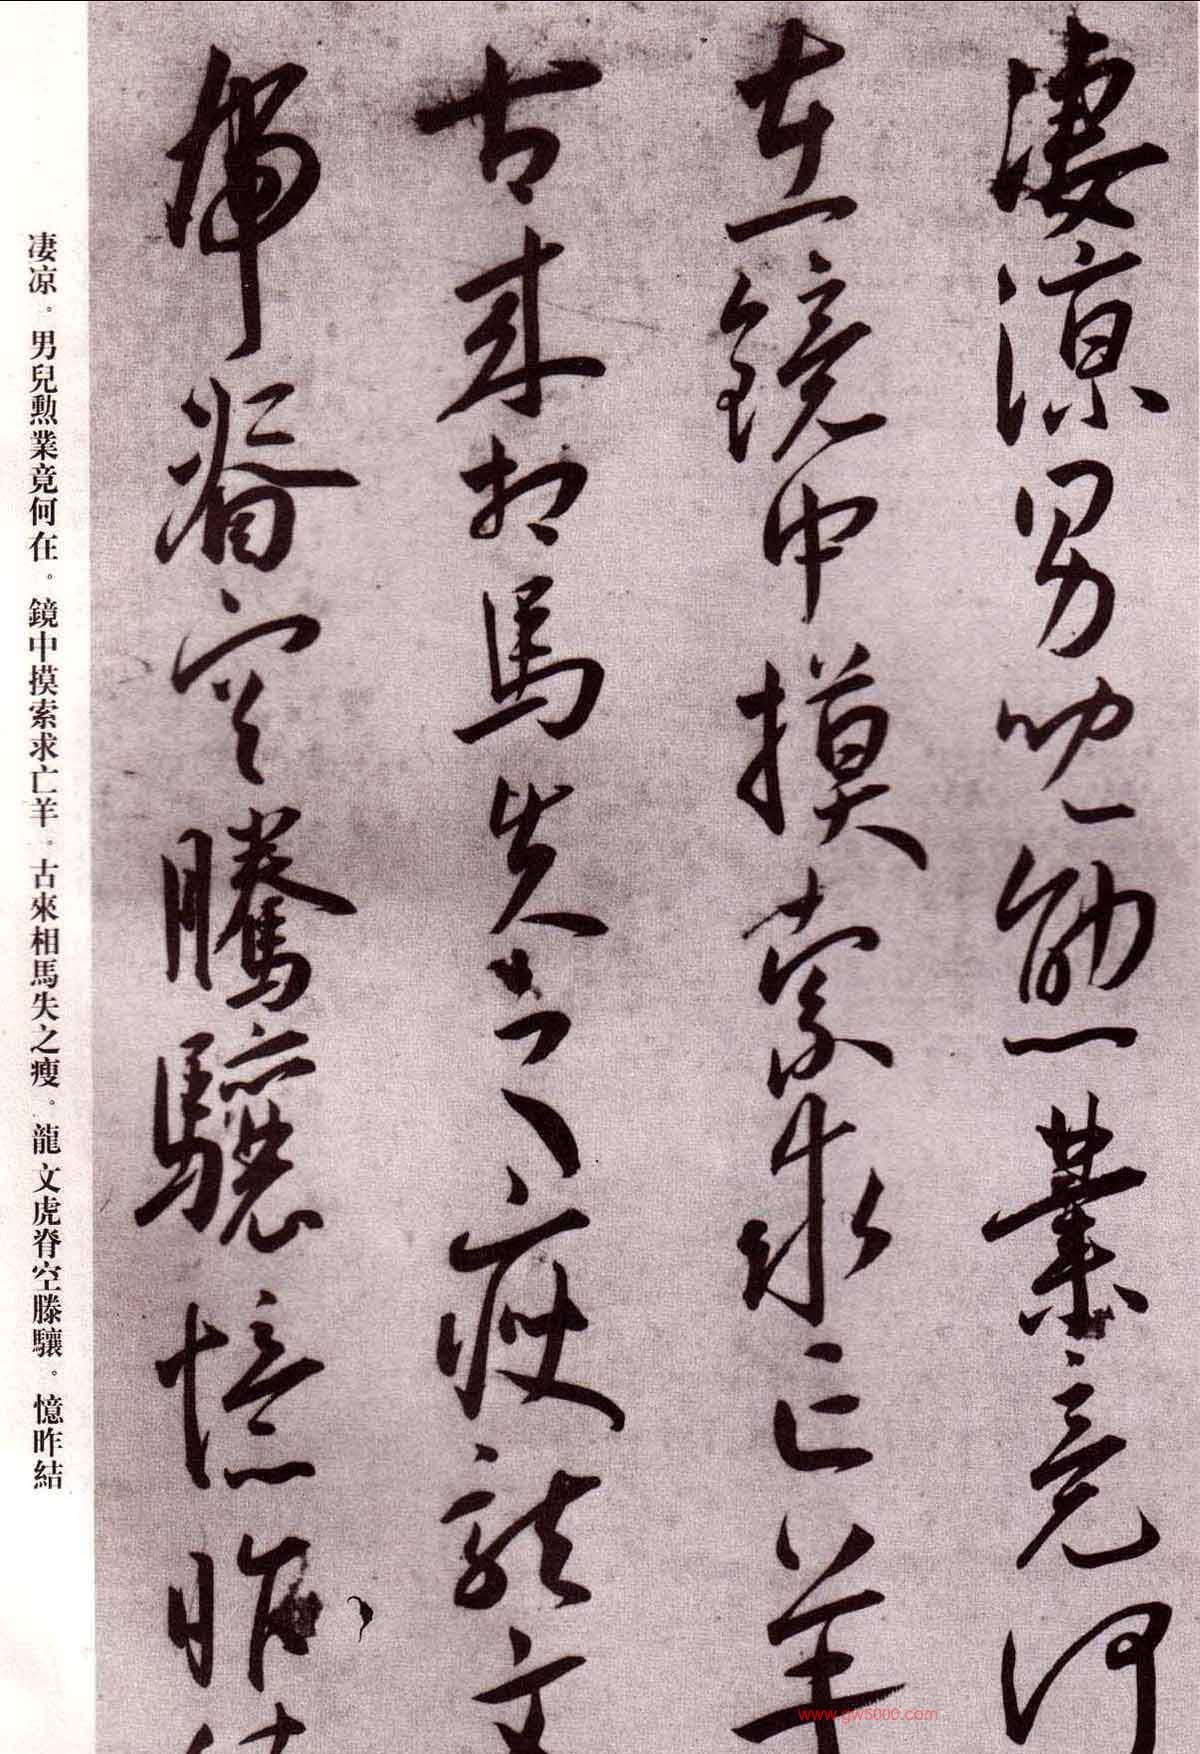 凄凉男兒勲業竟何
在鏡中摸索求亡羊
古來相馬失之瘦龍文
虎脊空騰驤憶昨結
凄凉。男兒勲業竟何在。鏡中摸索求亡羊。古來相馬失之瘦。龍文虎脊空滕驤。憶昨結
www.gw5000.com